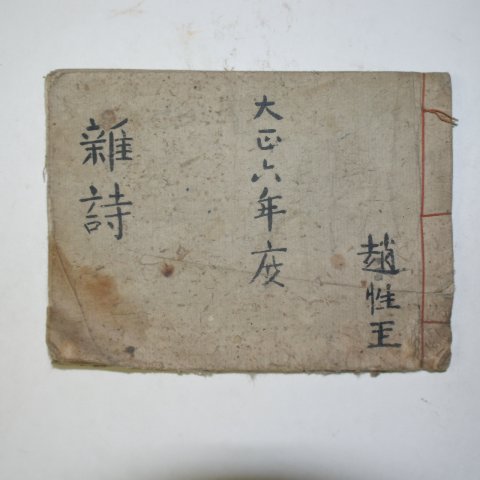 趙性王
大正六年度
雜詩